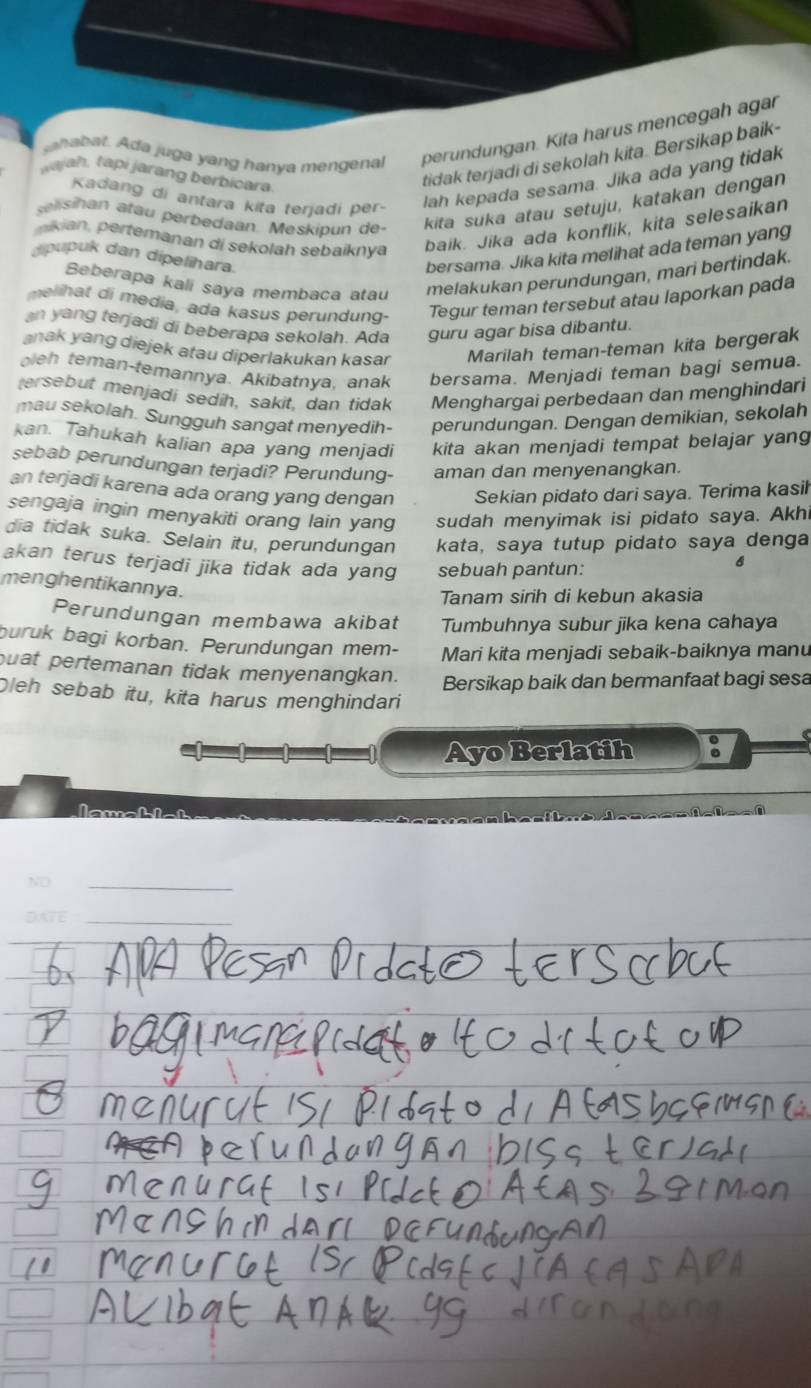 sahabat. Ada juga yang hanya mengenal
wajah, tapi jarang berbicara.
Kadang di antara kita terjadi per-
selisihan atau perbedaan. Meskipun de-
mikian, pertemanan di sekolah sebaiknya
dipupuk dan dipelihara.
Beberapa kali saya membaca atau
melihat di media, ada kasus perundung-
an yang terjadi di beberapa sekolah. Ada
anak yang diejek atau diperlakukan kasar
oleh teman-temannya. Akibatnya, anak
tersebut menjadi sedih, sakit, dan tidak
mau sekolah. Sungguh sangat menyedih-
kan. Tahukah kalian apa yang menjadi
sebab perundungan terjadi? Perundung-
an terjadi karena ada orang yang dengan
sengaja ingin menyakiti orang lain yang
dia tidak suka. Selain itu, perundungan
akan terus terjadi jika tidak ada yang
menghentikannya.
Perundungan membawa akibat
buruk bagi korban. Perundungan mem-
buat pertemanan tidak menyenangkan.
Oleh sebab itu, kita harus menghindari
perundungan. Kita harus mencegah agar
tidak terjadi di sekolah kita. Bersikap baik-
lah kepada sesama. Jika ada yang tidak
kita suka atau setuju, katakan dengan
baik. Jika ada konflik, kita selesaikan
bersama. Jika kita melihat ada teman yang
melakukan perundungan, mari bertindak.
Tegur teman tersebut atau laporkan pada
guru agar bisa dibantu.
Marilah teman-teman kita bergerak
bersama. Menjadi teman bagi semua.
Menghargai perbedaan dan menghindari
perundungan. Dengan demikian, sekolah
kita akan menjadi tempat belajar yang
aman dan menyenangkan.
Sekian pidato dari saya. Terima kasih
sudah menyimak isi pidato saya. Akhi
kata, saya tutup pidato saya denga
sebuah pantun:
Tanam sirih di kebun akasia
Tumbuhnya subur jika kena cahaya
Mari kita menjadi sebaik-baiknya manu
Bersikap baik dan bermanfaat bagi sesa
Ayo Berlatih :
NO
DATE
6. APA Pesan Pidato
7 ditutup
8 menurut ISI Pidato di AtAs
perundungAn bisa terjadi
9 menurut isi Pidato AtAs
menghindARI perundungAn
menurut ISI Pidato AtAS APA
AKibat AnAk yg dirundung